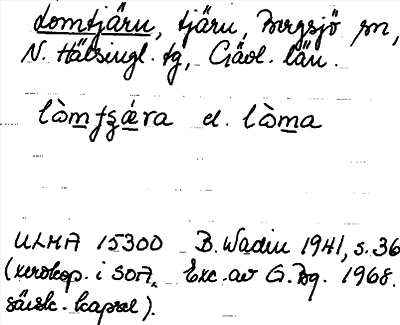 Lomtjärn, tjärn, Bergsjö sn,
N. Hälsingl. tg, Gävl. län.
lòmtʂæ̀ra el. lòma
ULMA 15300 B. Wadin 1941, s. 36
(xerokop. i SOA, Exc. av G. Bg. 1968.
särsk. kapsel).